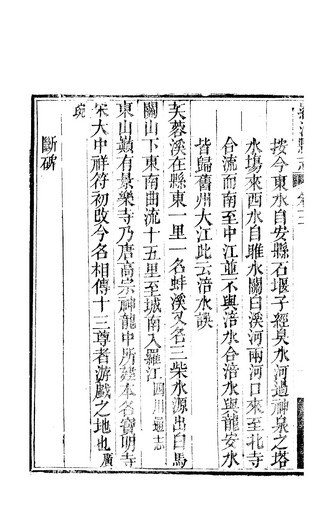 按今東水自安縣石堰子經泉水河過神泉之塔
水塲來西水自雎水關白溪河兩河口來至北寺
合流而南至中江並不與涪水合涪水與龍安水
皆歸舊州大江此云涪水誤
芙蓉溪在縣東一里一名蚌溪又名三柴水源出白馬
關山下東南曲流十五里至城南入羅江四川通志
東山巔有景樂寺乃唐高宗神龍中所建本名寶明寺
宋大中祥符初改今名相傳十三尊者游戲之地也廣
斷碑